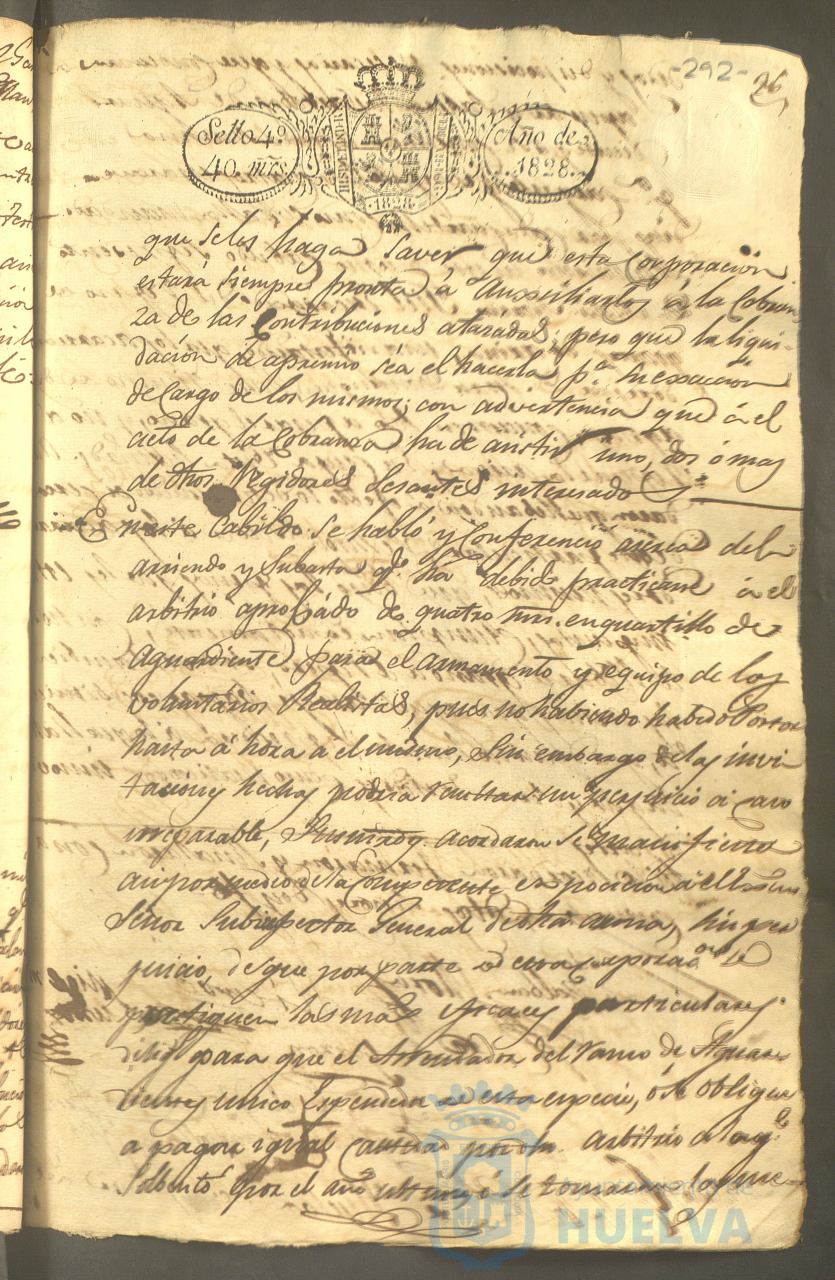 -292-
26
Sello 4º
40. mrs
HISP. ET IND. R
1828
Año de
1828.
que se les haga saver que esta Corporacion
estará siempre pronta á Auxiliarlos á la Cobran
za de las Contribuciones atrasadas, pero que la liqui-
dación de apremio séa el hacerla pª su exaccion
de Cargo de los mismos; con advertencia que á el
acto de la Cobranza há de asistir uno, dos ó mas
de dhos. Regidores Cesantes interesado
En este Cabildo se habló y Conferenció acerca del
arriendo y Subasta qº. há debido practicarse á el
arbitrio aprobado de quatro mrs. en quartillo de
Aguardiente para el armamento y equipo de los
Voluntários Realistas, pues no habiendo habido Postor
hasta á hora a el mismo, Sin embargo de las invi
taciones hechas podría resultar un perjuicio si caso
irreparable, acordaron se manifieste
asi por medio de la Competente exposicion á el Exmo
Señor Subinspector General de dha arma, sin per
juicio, de que por parte de esta Corporaon se
practiquen las mas eficaces particulares
dilig para que el Arrendador del ramo de Aguar
diente, unico Espendedor de esta especie, ó se obligue
a pagar igual cantidad por dho. arbitrio
por el año se tomaron
HUELVA